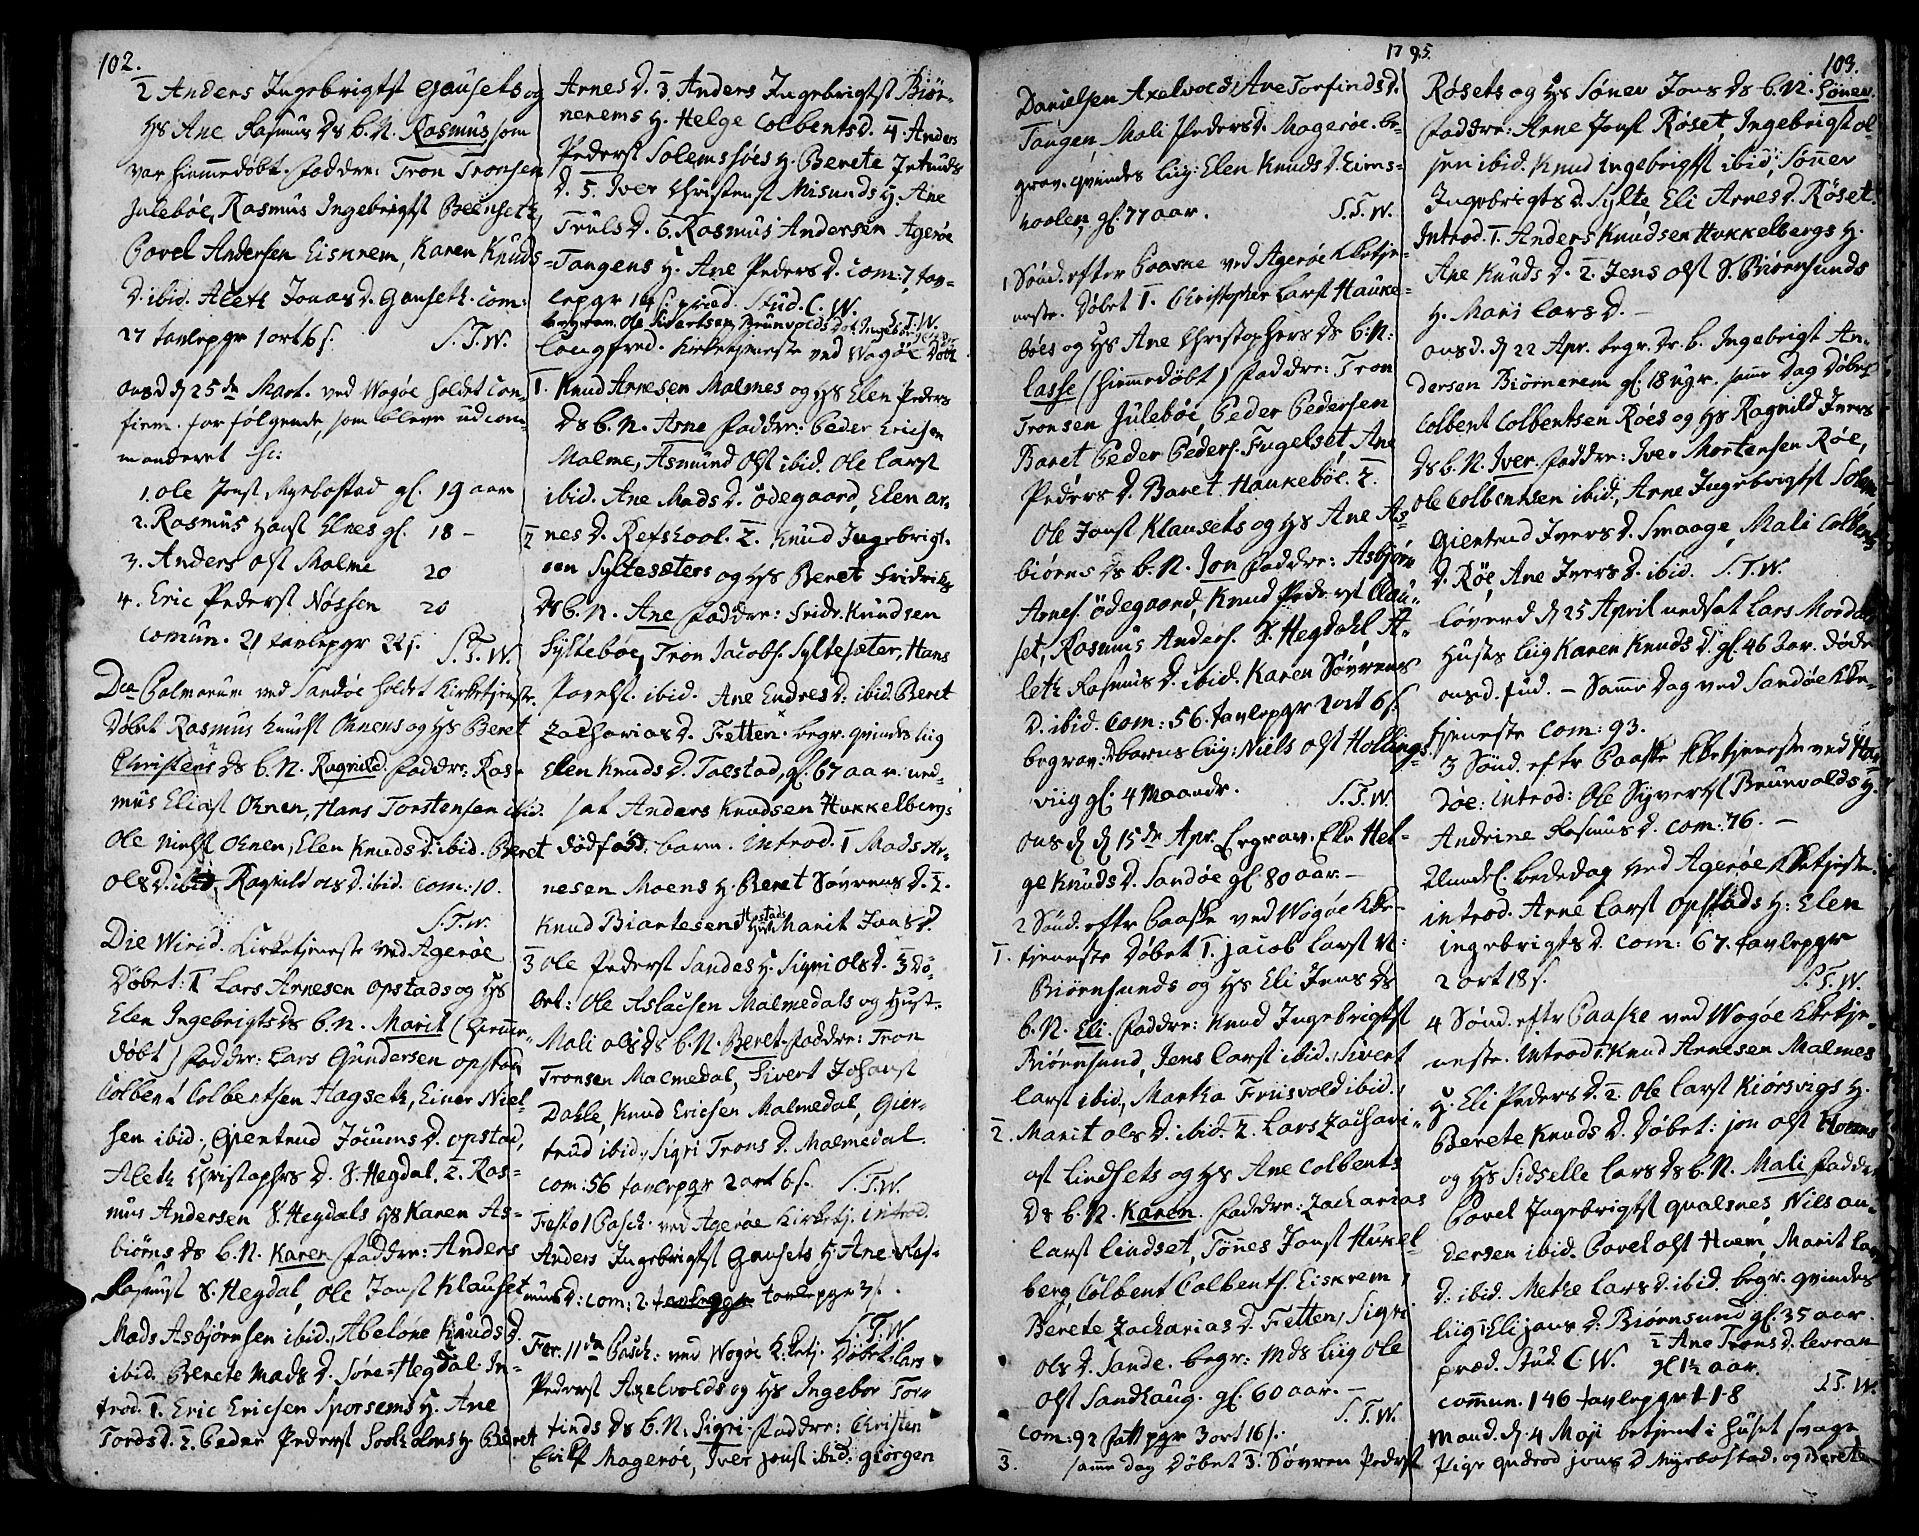 102.
2 Anders Ingebrigtst Gausets og
Hs Ane Rasmus Ds b. N. Rasmus som
var hiemmedøbt. Faddre: Tron Tronsen
Julebøe, Rasmus Ingebrigtst Beensetz,
Povel Andersen Eiskrem, Karen Knuds
D. ibid. Aleth Jonas D. Gausetz. Com:
27 tavlepgr 1 ort 6 s. S.T.W.
onsd d 25de Mart. ved Wogøe holdet Con-
firm. for følgende, som bleve udcom-
manderet
1. Ole Jonst Myrbostad gl. 19 aar
2. Rasmus Hanst Elnes gl. 18 -
3. Anders Olst Malme 20
4. Eric Pederst Nøssen 20
Comun. 21 tavlepgr 22 s. S.T.W.
Dca Palmarum ved Sandøe holdet Kirketjenste.
Døbet Rasmus Knudst Ohnens og Hs Beret
Christens Ds b. N. Ragnild. Faddre. Ras-
mus Eliast Ohnen, Hans Torstensen ibid.
Ole Nielst Ohnen, Elen Knuds D. ibid. Beret
Ols D. ibid, Ragnild Ols D. ibid. Com: 10.
S.T.W.
Die Virid. Kirketjenste ved Agerøe
Døbet: 1 Lars Arnesen Opstads og Hs
Elen Ingebrigts Ds b. N. Marit (hiemme-
døbt) Faddre: Lars Gundersen Opstad
Colbent Colbentsen Hagseth, Einer Niel-
sen ibid., Giertrud Joenms D. Opstad,
Aleth Christophrs D. S. Hegdal. 2. Ras-
mus Andersen S. Hegdals Hs Karen As-
biørns Ds b. N. Karen Faddre: Anders
Rasmust S. Hegdal, Ole Jonst Klauset
Mads Asbjørnsen ibid., Abelone Knuds D.
ibid. Berete Mads D. Søre-Hegdal. In-
trod. 1. Eric Ericsen Sporsems H. Ane
Tords D. 2. Peder Pederst Sooholms H. Beret
Arnes D. 3. Anders Ingebrigtst Biør-
nerems H. Helge Colbents D. 4. Anders
Pederst Solemsøes H. Berete Jetmuds
D. 5. Iver Christenst Misunds H. Ane
Truls D. 6. Rasmus Andersen Agerøe
Tangens H. Ane Peders D. Com: 7, tav-
lepgr 14 s. præd. Stud. C. W.
S.T.W.
begrav. Ole Sivertsen Brunvolds
Longfred. Kirketjeneste ved Wogøe Døbt
1. Knud Arnesen Malmes og Hs Elen Peders
Ds b. N. Arne Faddre: Peder Ericsen
Malme, Asmund Olst ibid. Ole Larst
ibid. Ane Mads D. Ødegaard, Elen Ar-
nes D. Refskool. 2. Knud Ingebrigt-
sen Syltesæters og Hs Beret Fridrichs
Ds b. N. Ane Faddre: Fridr. Knudsen
Syltebøe, Tron Jacobs. Syltesæter, Hans
Povelst. ibid. Ane Endres D. ibid. Beret
Zacharias D. Fetten. begr. qvindes liig
Elen Knuds D. Tolstad, gl. 67 aar. ned-
sat Anders Knudsen Hukkelbergs
dødfød barn. Introd. 1 Mads Ar-
nesen Moens H. Beret Søvrens D. 2.
Knud Biartesen Opstads Hust. Marit Jons D.
3 Ole Pederst Sandes H. Sigri Ols D. 3 Dø-
bet: Ole Aslacsen Malmedals og Hust.
Mali Ols Ds b. N. Beret Faddre: Tron
Tronsen Malmedal, Sivert Johanst
Dahle, Knud Ericsen Malmedal, Gier-
trud ibid., Sigri Trons D. Malmedal.
Com: 56 tavlepgr 2 ort 6 s. S.T.W.
Festo 1 Pasch. ved Agerøe Kirketj. introd.
Anders Ingebrigtst Gausets H. Ane Ras-
mus D: Com: 2. tavlepgr 3 s.
S.T.W.
Fer. 11da Pasch: ved Wogøe K.tetj. Døbet: Lars
Pederst Axelvolds og Hs Ingebor Tor-
finds Ds b. N. Sigri. Faddre: Christen
Magerøe, Iver Jonst ibid: Giørgen
1795.
103.
Danielsen Axelvold: Ane Torfinds D.
Tangen, Mali Peders D. Magerøe. be-
grav. qvindes liig: Elen Knuds D. Eins-
hoolen, gl. 77 aar. S.T.W.
1 Sønd. efter Paaske ved Agerøe Kketje-
neste. Døbet 1. Christopher Larst Hauke-
bøes og Hs Ane Christophers Ds b: N:
Lasse (hiemmedøbt) Faddre: Tron
Tronsen Julebøe, Peder Pedersen
Baret Peder Peders. Fugelset, Ane
Peders D. Baret, Haukebøe. 2.
Ole Jonst Klausets og Hs Ane As-
biørns Ds b. N. Jon Faddre: Asbjørn
Arnes. Ødegaard, Knud Pederst Clau-
set, Rasmus Anders. S. Hegdahl, A-
leth Rasmus D. ibid. Karen Søvrens
D. ibid. Com: 56. tavlepgr 2 ort 6 s.
begrav: D barns liig: Niels Olst Hollings-
viig gl. 4 Maander. S.T.W.
onsd d 15de Apr. begrav. Eke Hel-
ge Knuds D. Sandøe gl. 80 aar. -
2 Sønd. eftr Paaske ved Wogøe Kke-
1. tjeneste Døbet 1. Jacob Larst N:
Biørnsunds og Hs Eli Jens Ds
b. N. Eli. Faddre: Knud Ingebrigtst
Biørnsund, Jens Larst ibid., Sivert
Larst ibid., Martha Friisvold ibid.,
2. Marit Ols D. ibid. 2. Lars Zachari-
ast Lindsets og Hs Ane Colbents
Ds b. N. Karen. Faddre: Zacharias
Larst Lindset, Tønes Jonst Hukel-
berg, Colbent Colbents. Eiskrem,
Berete Zacharias D. Fetten, Sigri
Ols D. Sande. begr: Mds liig Ole
Olst Sandhaug. gl. 60 aar. -
S.T.W.
Com: 92 Tatlpgr 3 ort 16 s.
3. samme dag Døbet 3. Søvren Pederst
Røsets og Hs Søner Jons Ds b. N. Søner.
Faddre: Arne Jonst Røset, Ingebrigt Ol-
sen ibid. Knud Ingebrigtst ibid., Sønnev
Ingebrigts D. Sylte, Eli Arnes D. Røset.
Introd. 1. Anders Knudsen Hukkelbergs H.
Ane Knuds D. 2. Jens Olst S. Biørnsunds
H. Mari Lars D. -
onsd. d 22 Apr. begr. Dr. b. Ingebrigt An-
dersen Biørnerem gl. 18 ugr. samme Dag Døbet
Colbent Colbentsen Røes og Hs Ragnild Ivers
Ds b. N. Iver. Faddre: Iver Mortensen Røe,
Ole Colbentsen ibid., Arne Ingebrigtst Solem
Giertrud Ivers D. Smaage, Mali Colbents
D. Røe, Ane Ivers D. ibid. S.T.W.
Løverd d 25 April nedsat Lars
Hustrs liig Karen Knuds D. gl. 46 aar. døde
onsd. - Samme Dag ved Sandøe Kke-
tjeneste Com: 93.
3 Sønd. eftr Paaske Kketjeneste ved
døe: introd: Ole Syverst Brunvolds H.
Andrine Rasmus D. Com: 76. -
Almdel. bededag ved Agerøe Kketjeste.
introd. Arne Larst Opstads H: Elen
Ingebrigts D. Com: 67. tavlepgr
2 ort 18 s. S.T.W.
4 Sønd. eftr Paaske ved Wogøe Kketje-
neste. Introd: 1. Knud Arnesen Malmes
H. Eli Peders D. 2. Ole Larst Kiørsvigs H.
Berete Knuds D. Døbet: Jon Olst Hoems
og Hs Sidselle Lars Ds b. N. Mali Faddre
Povel Ingebrigtst Qualsnes, Niels An-
dersen ibid. Povel Olst Hoem, Marit Lars
D. ibid. Methe Lars D. ibid. begr. qvindes
liig: 1. Eli Jans D. Biørnsund gl. 35 aar.
2 Ane Trons D. Levran
præd. Stud. C W. gl 1½ aar.
S.T.W.
commun. 146 tavlepgr 118
Mand. d. 4 Maji betjent i huset svage
Pige Gudrod Jons D Myrbostad, og Berete